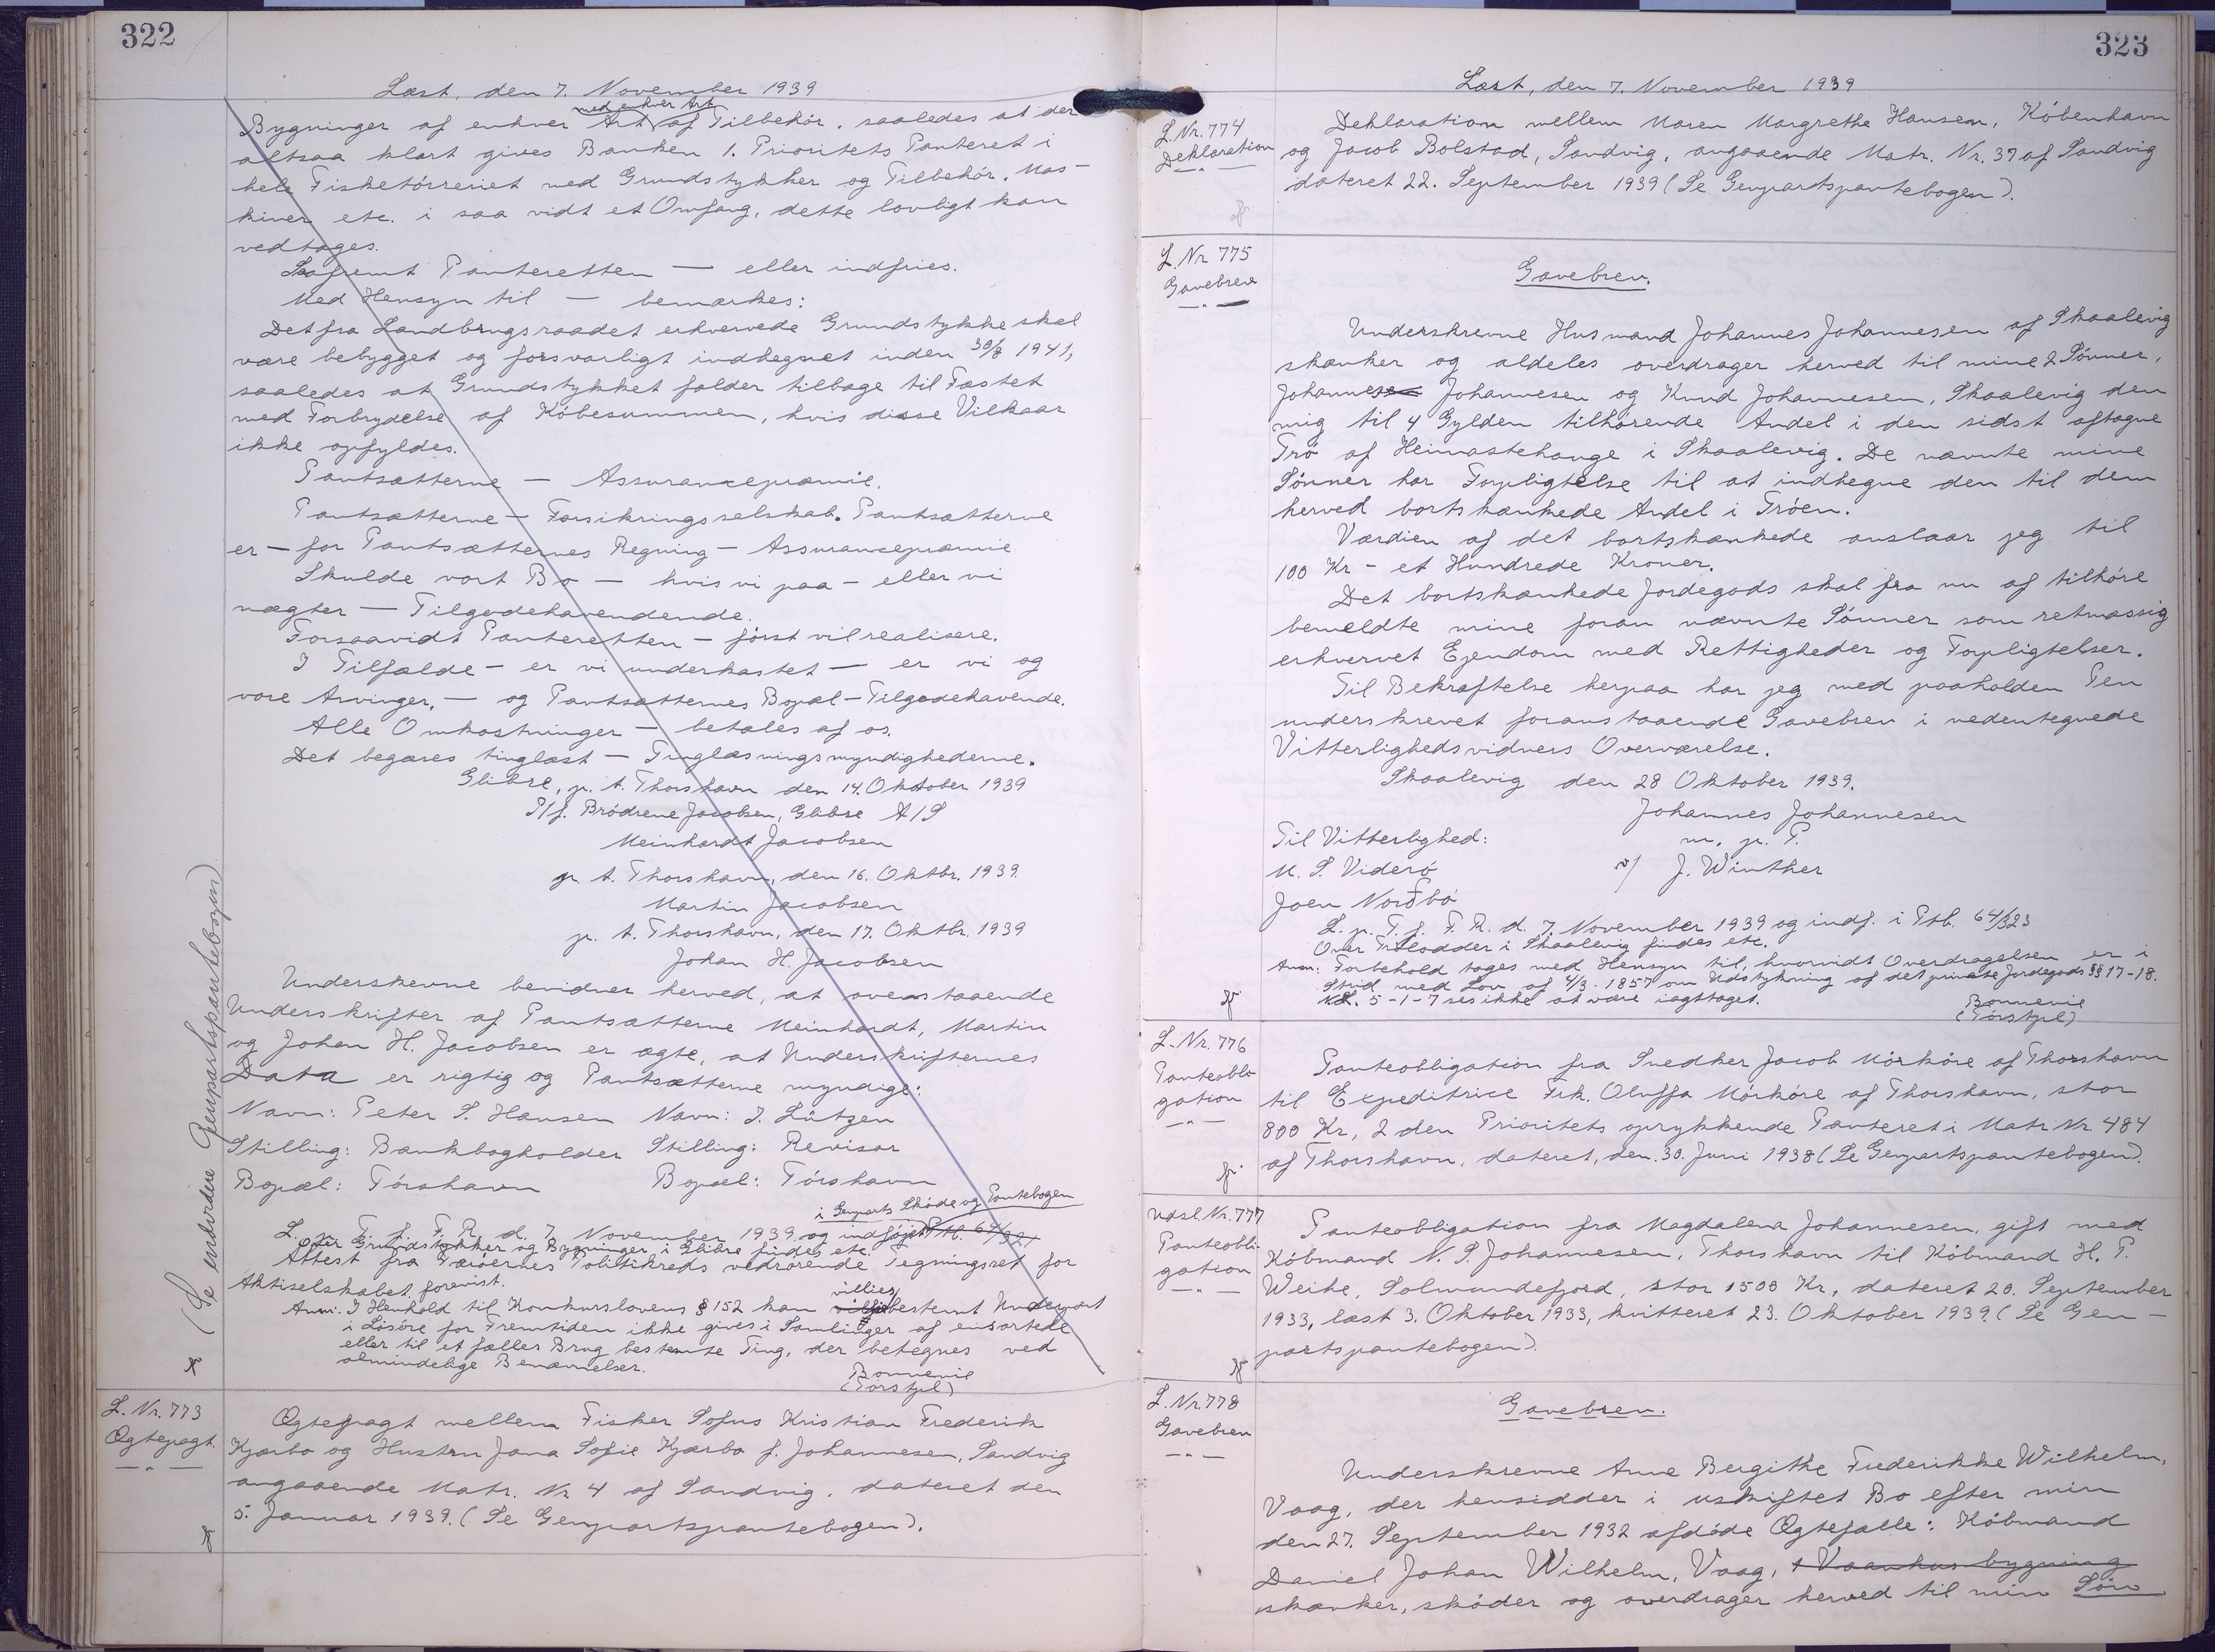 322
Læst, den 7. November 1939
med enhver Art
Bygninger af enhver Art af Tilbehör, saaledes at der
altsaa klart gives Banken 1. Prioritets Panteret i
hele Fisketörreriet med Grundstykker og Tilbehör, Mas-
kiner etc. i saa vidt et Omfang, dette lovligt kan
vedtages.
Saafremt Panteretten — eller indfries.
Med Hensyn til — bemærkes:
Det fra Landbrugsraadet erhvervede Grundstykke skal
være bebygget og forsvarligt indhegnet inden 30/8 1941,
saaledes at Grundstykket falder tilbage til Fæstet
med Forbrydelse af Köbesummen, hvis disse Vilkaar
ikke opfyldes.
Pantsætterne — Assurancepræmie.
Pantsætterne — Forsikringsselskab. Pantsætterne
er — for Pantsætternes Regning — Assurancepræmie
Skulde vort Bo — hvis vi paa — eller vi
nægter — Tilgodehavendende.
Forsaavidt Panteretten — först vil realisere.
I Tilfælde — er vi underkastet — er vi og
vore Arvinger, — og Pantsætternes Bopæl — Tilgodehavende.
Alle Omkostninger — betales af os.
Det begæres tinglæst — Tinglæsningsmyndighederne.
Glibre, p. t. Thorshavn den 14. Oktober 1939
P/f. Brödrene Jacobsen, Glibre A/S
Meinhardt Jacobsen
p. t. Thorshavn, den 16. Oktbr. 1939.
Martin Jacobsen
p. t. Thorshavn, den 17. Oktbr. 1939
Johan H. Jacobsen
Underskevne bevidner herved, at ovenstaaende
Underskrifter af Pantsætterne Meinhardt, Martin
og Johan H. Jacobsen er ægte, at Underskrifternes
Data er rigtig og Pantsætterne myndige:
Navn: Peter S. Hansen Navn: J. Lützen
Stilling: Bankbogholder Stilling: Revisor
Bopæl: Tórshavn Bopæl: Tórshavn
i Genparts Sköde og Pantebogen
L. p. T. f. F. R. d. 7. November 1939 og indföjet Ptb. 64/321
Over Grundstykker og Bygninger i Glibre findes etc.
Attest fra Færöernes Politikreds vedrörende Tegningsret for
Aktieselskabet forevist.
villies
Anm. I Henhold til Konkurslovens § 152 kan bestemt Underpant
i Lösöre for Fremtiden ikke gives i Samlinger af ensartede
eller til et fælles Brug bestemte Ting, der betegnes ved
almindelige Benævnelser.
Bonnevie
(Tórstjil)
(Se endvidere Genpartspantebogen)
L. Nr. 773
Ægtepagt.
Ægtepagt mellem Fisker Sofus Kristian Frederik
Kjærbo og Hustru Jana Sofie Kjærbo f. Johannesen, Sandvig
angaaende Matr. Nr 4 af Sandvig, dateret den
5. Januar 1939. (Se Genpartspantebogen).
323
Læst, den 7. November 1939
L. Nr. 774
Deklaration
Deklaration mellem Maren Margrethe Hansen, Köbenhavn
og Jacob Bolstad, Sandvig, angaaende Matr. Nr. 37 af Sandvig
dateret 22. September 1939 (Se Genpartspantebogen).
L. Nr 775
Gavebrev
Gavebrev.
Underskrevne Husmand Johannes Johannesen af Skaalevig
skænker og aldeles overdrager herved til mine 2 Sönner,
Johannes Johannesen og Knud Johannesen, Skaalevig den
mig til 4 Gylden tilhörende Andel i den sidst aftagne
Trö af Heimastehauge i Skaalevig. De nævnte mine
Sönner har Forpligtelse til at indhegne den til dem
herved bortskænkede Andel i Tröen.
Værdien af det bortskænkede anslaar jeg til
100 Kr - et Hundrede Kroner.
Det bortskænkede Jordegods skal fra nu af tilhöre
bemeldte mine foran nævnte Sönner som retmæssig
erhvervet Ejendom med Rettigheder og Forpligtelser.
Til Bekræftelse herpaa har jeg med paaholden Pen
underskrevet foranstaaende Gavebrev i nedentegnede
Vitterlighedsvidners Overværelse.
Skaalevig den 28 Oktober 1939.
Johannes Johannesen
Til Vitterlighed: m. p. P.
M. S. Viderö v/ J. Winther
Joen Norðbö
L. p. T. f. F. R. d. 7. November 1939 og indf. i Ptb. 64/323
Over Trölodder i Skaalevig findes etc.
Anm: Forbehold tages med Hensyn til, hvorvidt Overdragelsen er i
Strid med Lov af 4/3. 1857 om Udstykning af det private Jordegods §§ 17-18.
K.L. 5-1-7 ses ikke at være iagttaget.
Bonnevie
(Tórstjil)
L. Nr. 776
Panteobli-
gation
Panteobligation fra Snedker Jacob Mörköre af Thorshavn
til Expeditrice Frk. Oluffa Mörköre af Thorshavn, stor
800 Kr, 2 den Prioritets oprykkende Panteret i Matr. Nr. 484
af Thorshavn, dateret, den 30. Juni 1938 (Se Genpartspantebogen).
Udsl. Nr. 777
Panteobli-
gation
Panteobligation fra Magdalena Johannesen, gift med
Köbmand N. S. Johannesen, Thorshavn til Köbmand H. P.
Weihe, Solmundefjord, stor 1500 Kr, dateret 20. September
1933, læst 3. Oktober 1933, kvitteret 23. Oktober 1939. (Se Gen-
partspantebogen).
L. Nr. 778
Gavebrev
Gavebrev.
Underskrevne Anne Bergithe Frederikke Wilhelm,
Vaag, der hensidder i uskiftet Bo efter min
den 27. September 1932 afdöde Ægtefælle: Köbmand
Daniel Johan Wilhelm, Vaag, 1 Vaanhusbygning
skænker, sköder og overdrager herved til min Sön